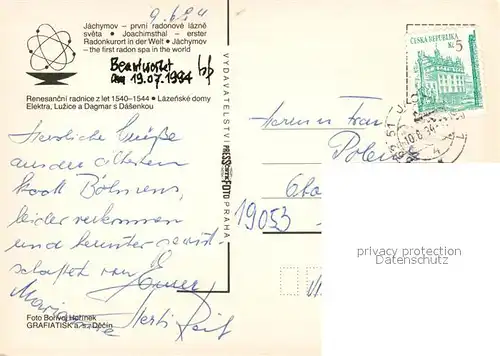 9.6.94
Jáchymov – první radonové lázně
světa • Joachimsthal – erster
Radonkurort in der Welt • Jáchymov –
the first radon spa in the world
Beantwortet
am 19.07.1994
Renesanční radnice z let 1540–1544 • Lázeňské domy
Elektra, Lužice a Dagmar s Dášenkou
Herzliche Grüße
aus der ältesten
Stadt Böhmens,
leider verkommen
und herunter
von
Foto Bořivoj Hořínek
GRAFIATISK a. s. Děčín
VYDAVATELSTVÍ PRESSFOTO PRAHA
ČESKÁ REPUBLIKA
Kč 5
Herrn u. Frau
19053
privacy protection
Datenschutz